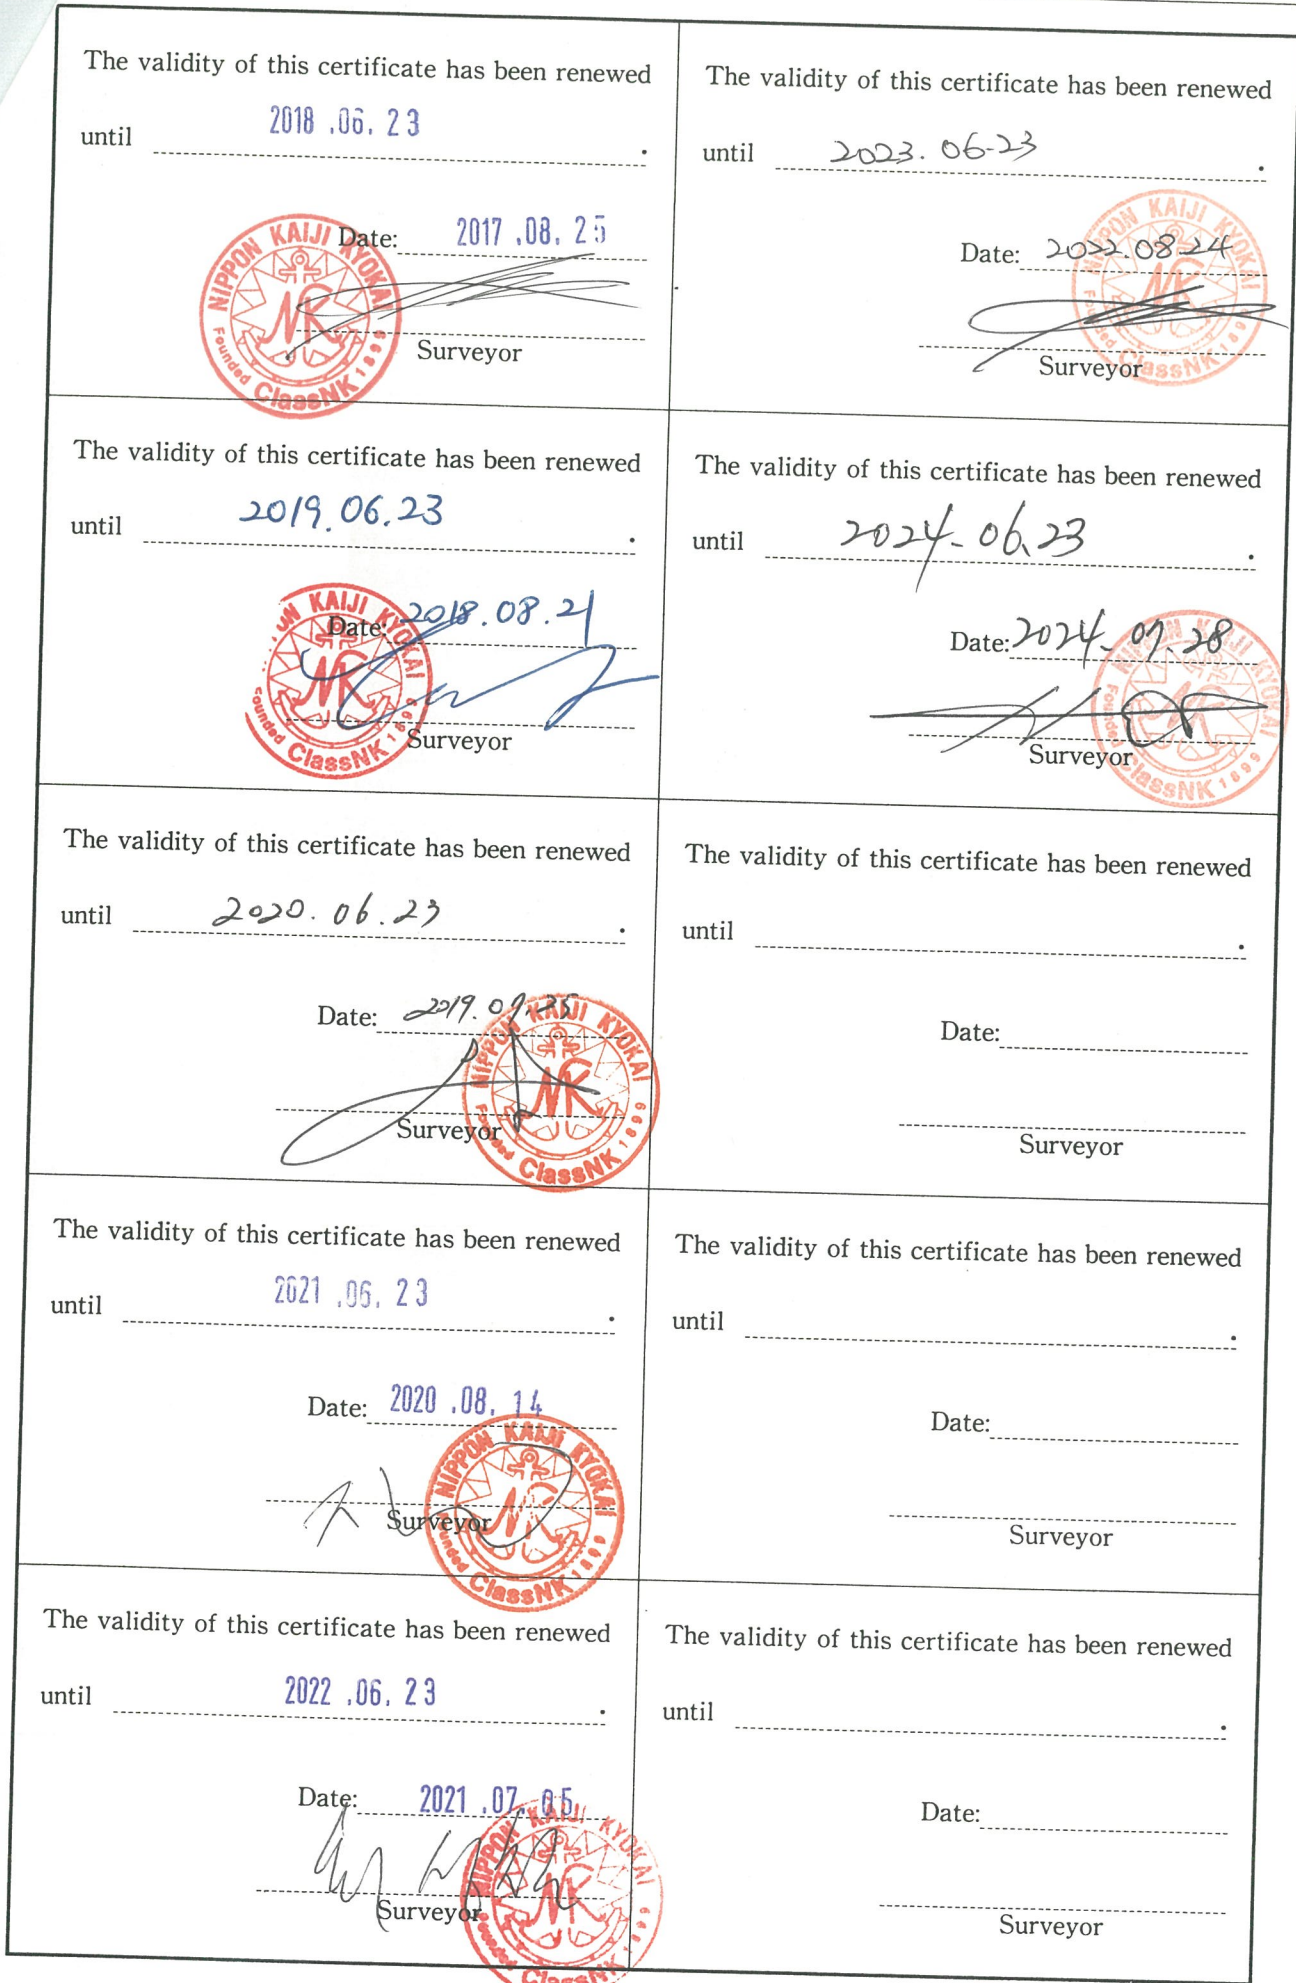 The validity of this certificate has been renewed
until 2018 .06. 23 .
Date: 2017 .08. 25
NIPPON KAIJI KYOKAI
NK
Founded 1899
ClassNK
Surveyor
The validity of this certificate has been renewed
until 2019.06.23 .
Date: 2018.08.21
KAIJI KYOKAI
NK
Founded 1899
ClassNK
Surveyor
The validity of this certificate has been renewed
until 2020. 06. 23 .
Date: 2019.
NIPPON KAIJI KYOKAI
NK
Founded 1899
ClassNK
Surveyor
The validity of this certificate has been renewed
until 2021 .06. 23 .
Date: 2020 .08. 14
NIPPON KAIJI KYOKAI
NK
Founded 1899
ClassNK
Surveyor
The validity of this certificate has been renewed
until 2022 .06. 23 .
Date: 2021 .07. 05
NIPPON KAIJI KYOKAI
NK
Founded 1899
ClassNK
Surveyor
The validity of this certificate has been renewed
until 2023. 06-23 .
Date: 2022.08.24
NIPPON KAIJI KYOKAI
NK
Founded
ClassNK
Surveyor
The validity of this certificate has been renewed
until 2024. 06.23 .
Date: 2024. 07. 28
NIPPON KAIJI KYOKAI
NK
Founded 1899
ClassNK
Surveyor
The validity of this certificate has been renewed
until .
Date:
Surveyor
The validity of this certificate has been renewed
until .
Date:
Surveyor
The validity of this certificate has been renewed
until .
Date:
Surveyor